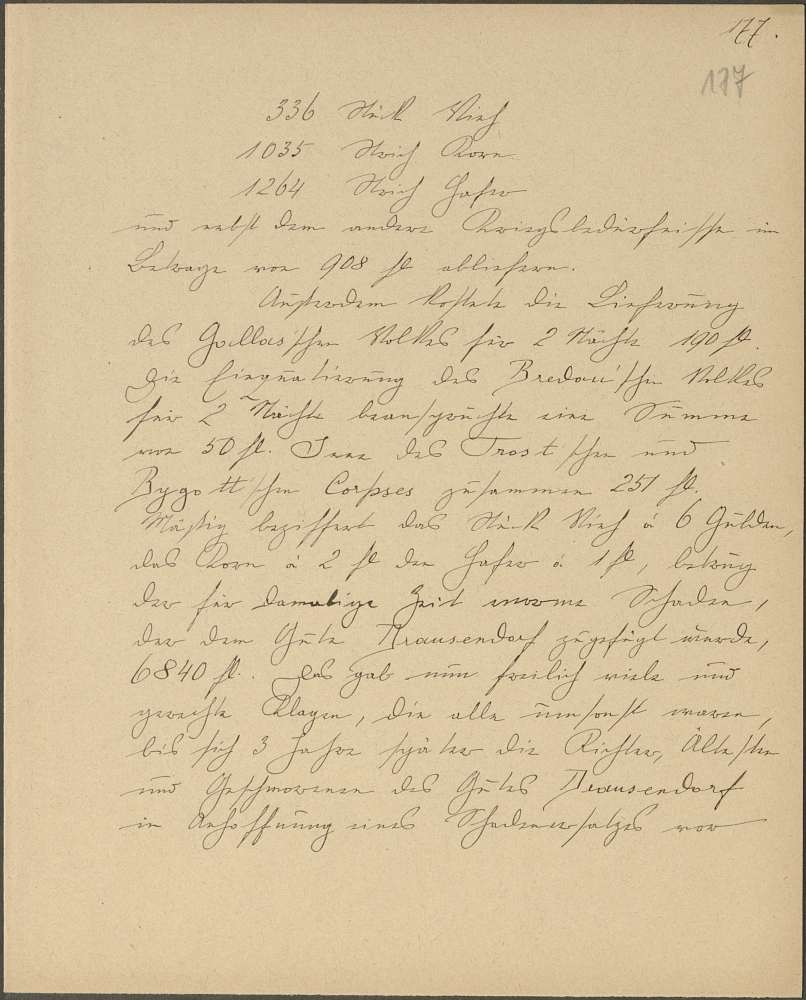 177.
177
336 Stück Vieh
1035 Strich Korn
1264 Strich Hafer
und nebst dem andere Kriegsbedürfnisse im
Betrage von 908 fl abliefern.
Außerdem kostete die Lieferung
des Gallas'schen Volkes für 2 Nächte 190 fl.
Die Einquatierung des Bredau'schen Volkes
für 2 Nächte beanspruchte eine Summe
von 50 fl. Jene des Trost'schen und
Bygott'schen Corpses zusammen 251 fl.
Mäßig beziffert das Stück Vieh à 6 Gulden,
das Korn à 2 fl den Hafer à 1 fl, betrug
der für damalige Zeit enorme Schaden,
der dem Gute Trausendorf zugefügt wurde,
6840 fl. Es gab nun freilich viele und
gerechte Klagen, die alle umsonst waren,
bis sich 3 Jahre später die Richter, Ältesten
und Geschworenen des Gutes Trausendorf
in Anhoffnung eines Schadenersatzes vor